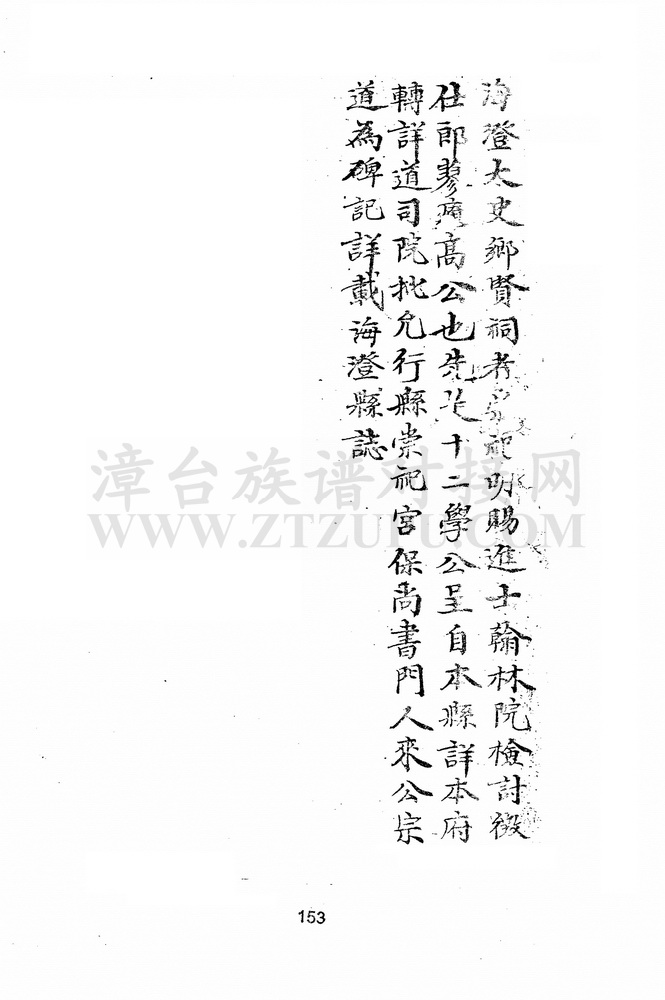 海澄太史鄉賢祠者 祀明賜進士翰林院檢討徵
仕郎蓼庵高公也先是十二學公呈自本縣詳本府
轉詳道司院批允行縣崇祀宮保尚書門人來公宗
道為碑記詳載海澄縣誌
漳台族谱对接网
WWW.ZTZUPU.COM
153